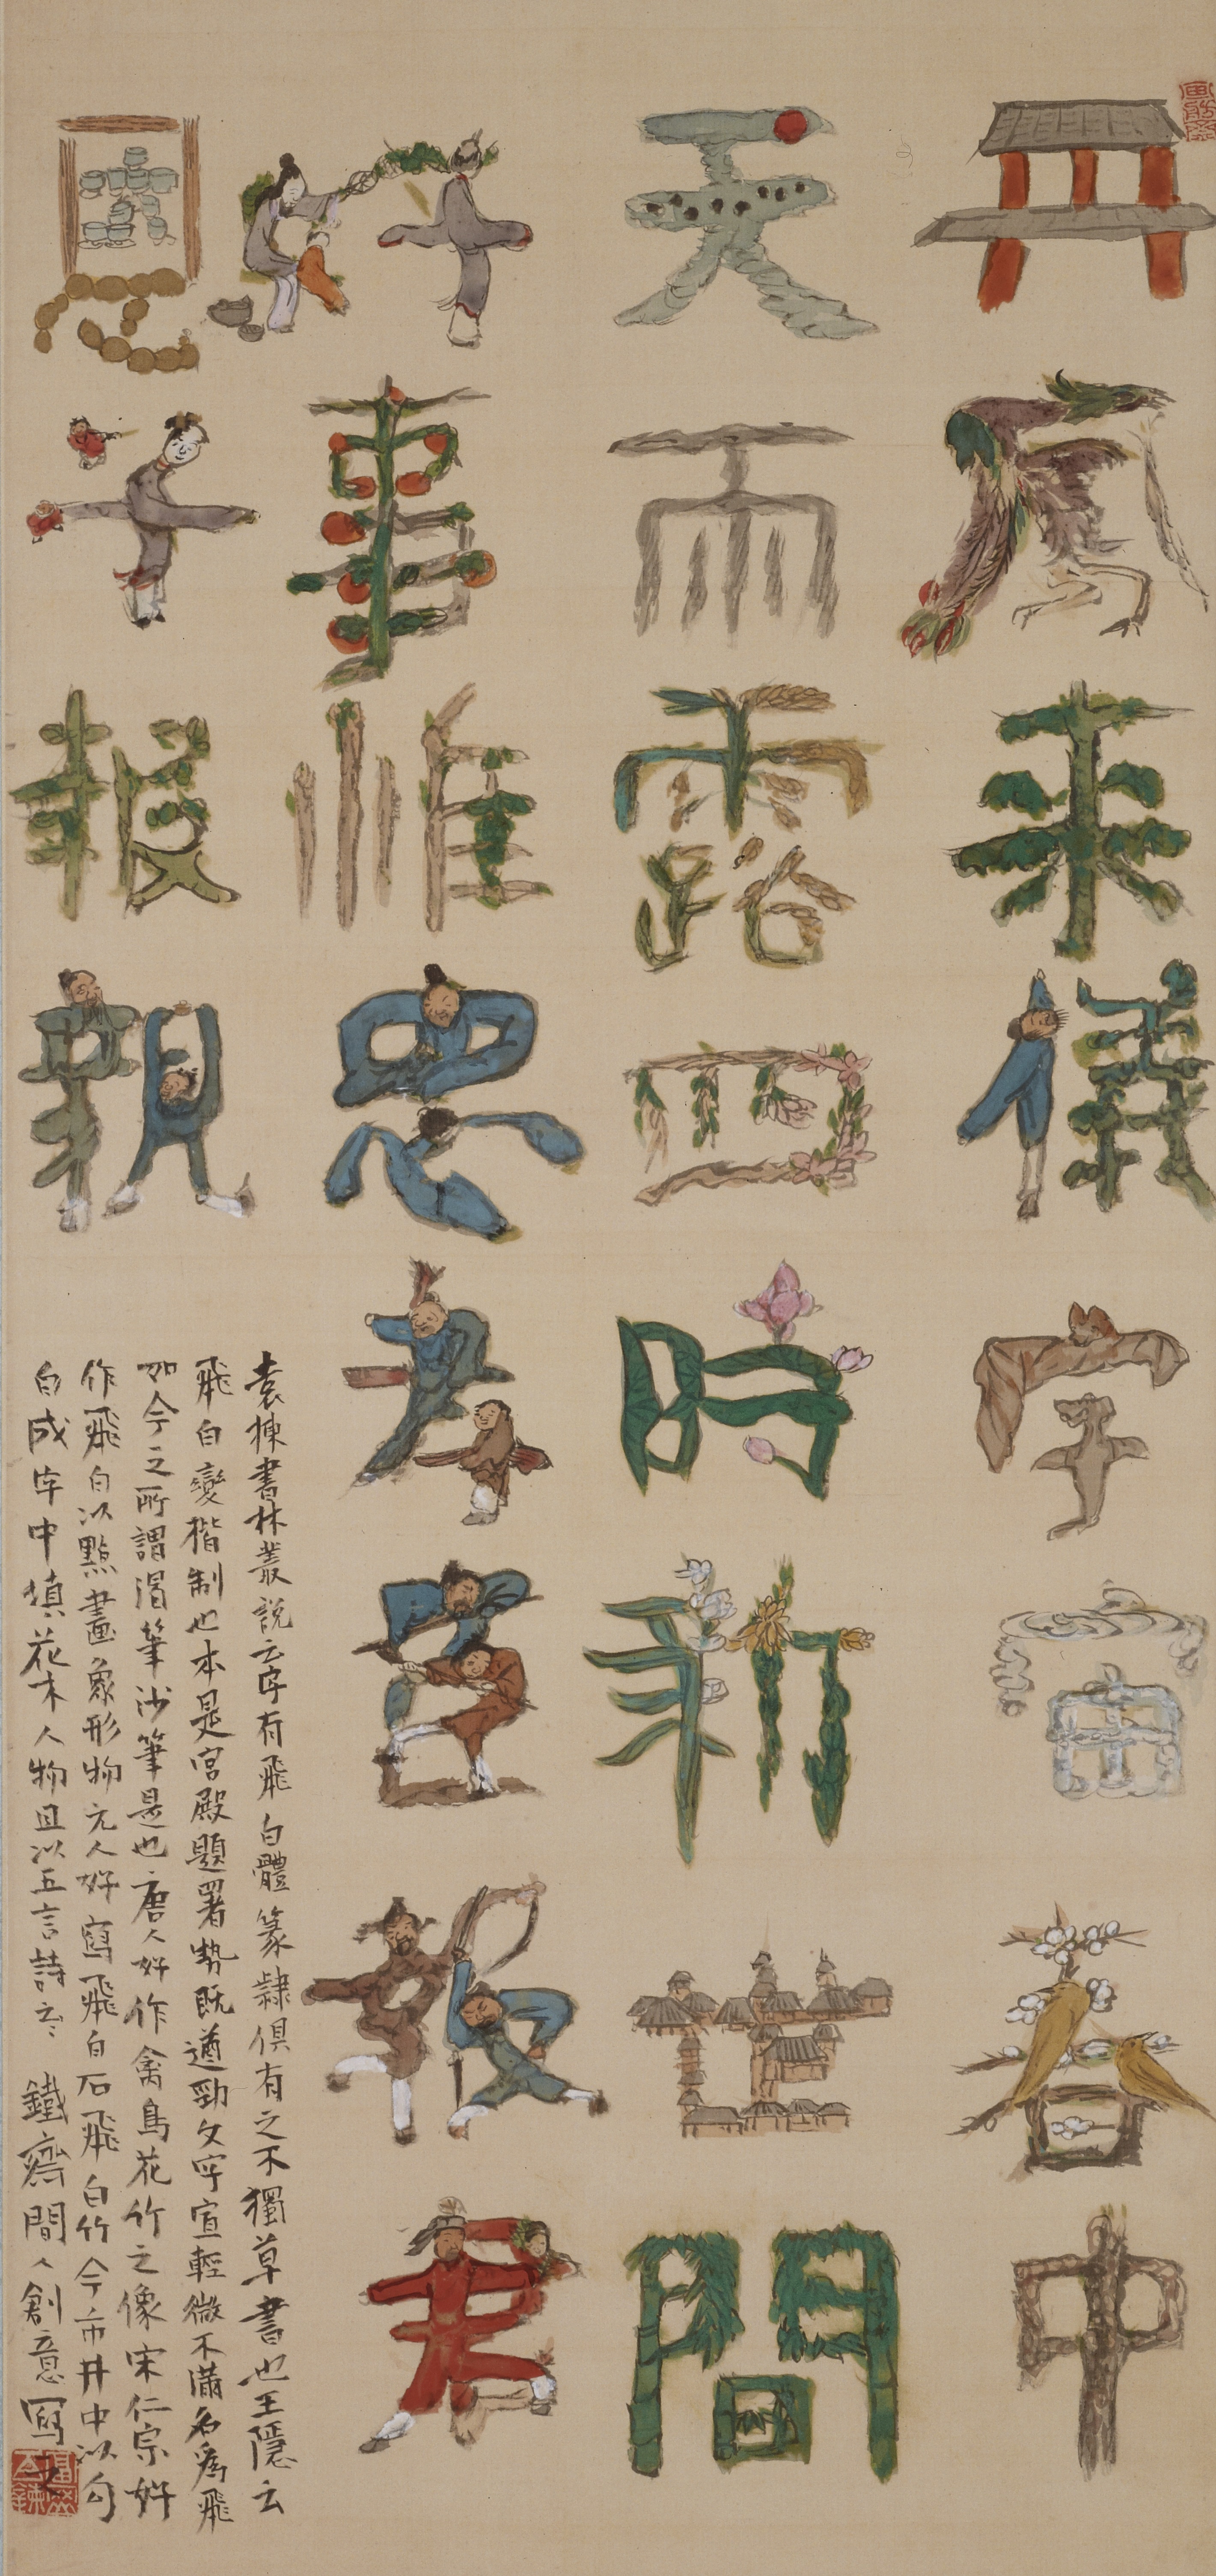 丹鳳来儀宇宙春中
天雨露四時新世間
好事惟忠孝臣報君
恩子報親
袁棟書林叢說云字有飛白體篆隷俱有之不獨草書也王隱云
飛白變楷制也本是宮殿題署勢既遒勁文字宜輕微不滿名為飛
如今之所謂渇筆沙筆是也唐人好作禽鳥花竹之像宋仁宗好
作飛白以點畫象形物元人好寫飛白石飛白竹今市井中以勾
白成字中填花木人物且以五言詩云々 鐵齋間人創意寫之